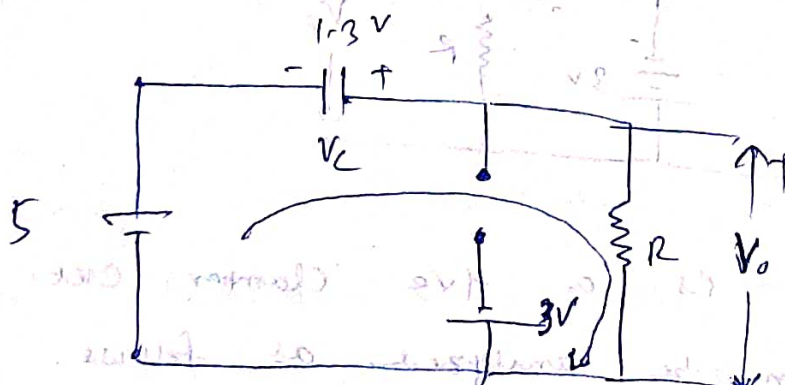 1.3 V
- +
Vc
5
R
Vo
3V